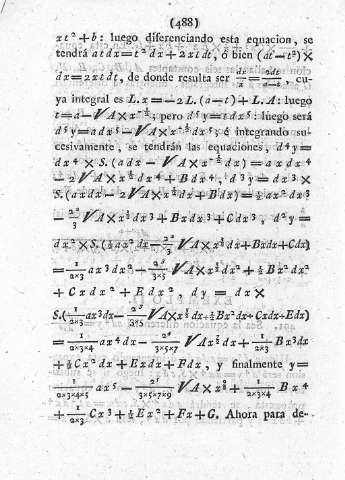 (488)
xt²+b: luego diferenciando esta equacion, se
tendrá atdx=t²dx+2xtdt, ó bien (at−t²)×
dx=2xtdt, de donde resulta ser dx/x=2dt/(a−t), cu-
ya integral es L.x=−2L.(a−t)+L.A: luego
t=a−√A×x^(−½); pero d⁵y=tdx⁵: luego será
d⁵y=adx⁵−√A×x^(−½)dx⁵; é integrando su-
cesivamente, se tendrán las equaciones, d⁴y=
dx⁴×S.(adx−√A×x^(−½)dx)=axdx⁴
−2√A×x^(½)dx⁴+Bdx⁴, d³y=dx³×
S.(axdx−2√A×x^(½)dx+Bdx)=½ax²dx³
−2²/3√A×x^(3/2)dx³+Bxdx³+Cdx³, d²y=
dx²×S.(½ax²dx−2²/3√A×x^(3/2)dx+Bxdx+Cdx)
=1/(2×3)ax³dx²−2³/(3×5)√A×x^(5/2)dx²+½Bx²dx²
+Cxdx²+Edx², dy=dx×
S.(1/(2×3)ax³dx−2³/(3×5)√A×x^(5/2)dx+½Bx²dx+Cxdx+Edx)
=1/(2×3×4)ax⁴dx−2⁴/(3×5×7)√A×x^(7/2)dx+1/(2×3)Bx³dx
+½Cx²dx+Exdx+Fdx, y finalmente y=
1/(2×3×4×5)ax⁵−2⁵/(3×5×7×9)√A×x^(9/2)+1/(2×3×4)Bx⁴
+1/(2×3)Cx³+½Ex²+Fx+G. Ahora para de-